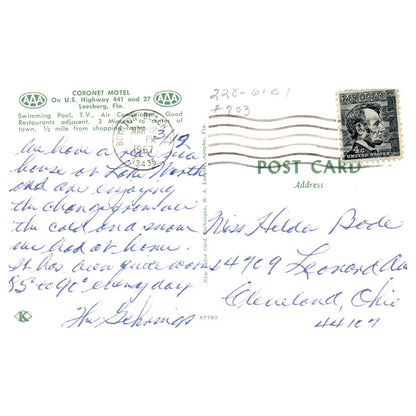 AAA
CORONET MOTEL
On U.S. Highway 441 and 27
Leesburg, Fla.
AAA
Swimming Pool, T.V., Air Conditioned. Good
Restaurants adjacent. 2 Minutes to center of
town. ½ mile from shopping center.
3/19
We have a nice
house at Lake Worth
and are enjoying
the change from
the cold and snow
we had at home.
It has been quite warm
85 to 90° everyday
The Gehrings
K
07789
PM
1967
33435
228-6161
#703
4¢
UNITED STATES
POST CARD
Address
Miss Hilda Bode
14909 Leonard Ave
Cleveland, Ohio